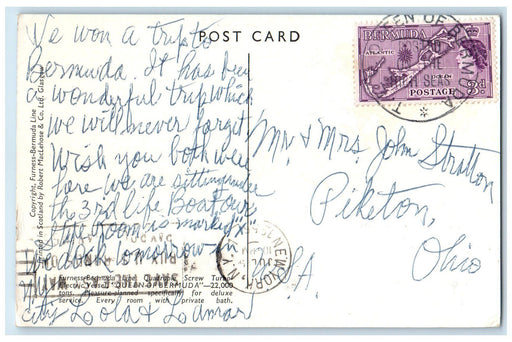 POST CARD
We won a trip to
Bermuda. It has been
a wonderful trip which
we will never forget
Wish you both were
here we are sitting under
the 3rd life Boat our
State room is marked "X"
we dock tomorrow in
city Lola & Lamar
Copyright, Furness-Bermuda Line
Printed in Scotland by Robert MacLehose & Co. Ltd. Glasgow
Furness-Bermuda Line Quadruple Screw Turbo
Electric Vessel "QUEEN OF BERMUDA"—22,000
tons. Pleasure-planned specifically for deluxe
service. Every room with private bath.
BERMUDA
ATLANTIC
OCEAN
POSTAGE
QUEEN OF BERMUDA
HIGH SEAS
NEW YORK, N.Y.
Mr & Mrs. John Stratton
Piketon,
Ohio
U.S.A.